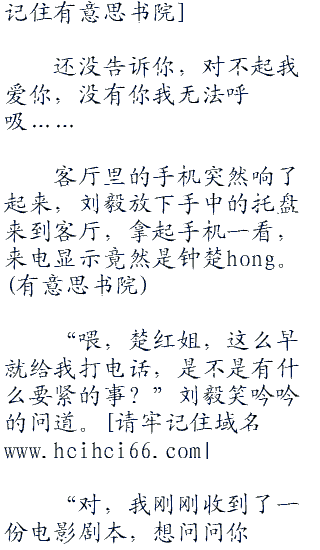 记住有意思书院]
还没告诉你，对不起我
爱你，没有你我无法呼
吸……
客厅里的手机突然响了
起来，刘毅放下手中的托盘
来到客厅，拿起手机一看，
来电显示竟然是钟楚hong。
(有意思书院)
“喂，楚红姐，这么早
就给我打电话，是不是有什
么要紧的事？”刘毅笑吟吟
的问道。[请牢记住域名
www.hcihci66.com|
“对，我刚刚收到了一
份电影剧本，想问问你